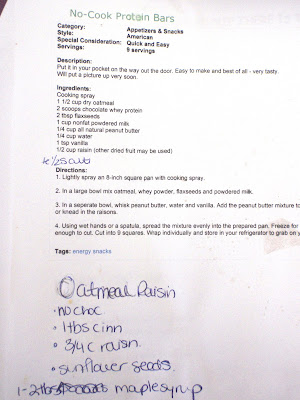 No-Cook Protein Bars
Category: Appetizers & Snacks
Style: American
Special Consideration: Quick and Easy
Servings: 9 servings
Description:
Put it in your pocket on the way out the door. Easy to make and best of all - very tasty.
Will put a picture up very soon.
Ingredients:
Cooking spray
1 1/2 cup dry oatmeal
2 scoops chocolate whey protein
2 tbsp flaxseeds
1 cup nonfat powdered milk
1/4 cup all natural peanut butter
1/4 cup water
1 tsp vanilla
1/2 cup raisin (other dried fruit may be used)
Directions:
1. Lightly spray an 8-inch square pan with cooking spray.
2. In a large bowl mix oatmeal, whey powder, flaxseeds and powdered milk.
3. In a seperate bowl, whisk peanut butter, water and vanilla. Add the peanut butter mixture to
or knead in the raisons.
4. Using wet hands or a spatula, spread the mixture evenly into the prepared pan. Freeze for
enough to cut. Cut into 9 squares. Wrap individually and store in your refrigerator to grab on
Tags: energy snacks
Oatmeal Raisin
• no choc
• 1 tbs cinn
• 3/4 c raisn.
• sunflower seeds.
1-2 tbs maple syrup